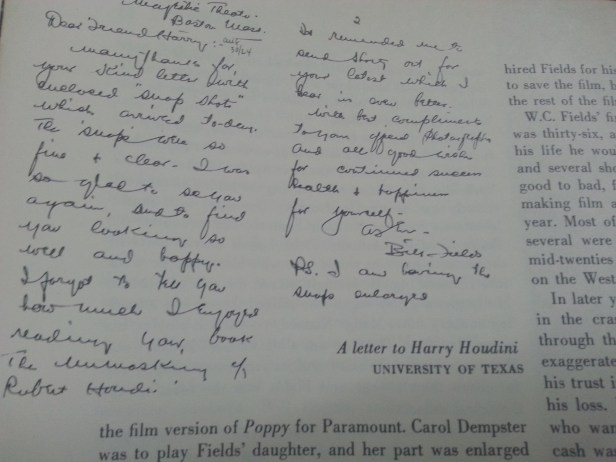 Majestic Theatre.
Boston Mass.
Dear Friend Harry:
Many thanks for
your kind letter with
enclosed "snap shots"
which arrived to-day.
The "snaps" were so
fine & clear. I was
so glad to see you
again, and to find
you looking so
well and happy.
I forgot to tell you
how much I enjoyed
reading your book
The Unmasking of
Robert Houdin
2
reminded me to
send out for
your latest which I
hear is even better.
With best compliments
to you and
and all good wishes
for continued success
health & happiness
for yourself-
As Ever-
Bill-Fields
P.S. I am having the
snaps enlarged
A letter to Harry Houdini
UNIVERSITY OF TEXAS
the film version of Poppy for Paramount. Carol Dempster
was to play Fields' daughter, and her part was enlarged
hired Fields for hi
to save the film, b
the rest of the fil
W.C. Fields' fi
was thirty-six,
his life he wou
and several sho
good to bad, f
making film a
year. Most of
several were
mid-twenties
on the West
In later y
in the cra
through th
exaggerate
his trust i
his loss.
who wan
cash wa